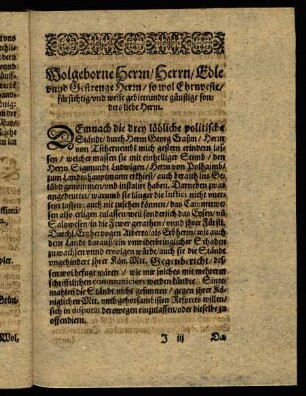 Wolgeborne Herrn/ Herrn/ Edle
vnnd Gestrenge Herrn/ so wol Ehrnueste/
fürsichtig vnd weise gebiettundte günstige son-
ders liebe Herrn.
DEmnach die drey löbliche politische
Stände/ durch Herrn Georg Erasm/ Herrn
von Tschernembl mich gestern erindern las-
sen/ welcher massen sie mit einhelliger Stimb/ den
Herrn Sigmundt Ludwigen/ Herrn von Polhaimb/
zum Landtshauptmann erkhiest/ auch herauß ins Ge-
löbd genommen/ vnd installirt haben. Darneben zwar
angedeutet/ warumb sie länger die Iustici nicht vner-
setzt lassen: auch nit zusehen können/ das Cammerwe-
sen also erligen zulassen/ weil sonderlich das Eysen/ vñ
Saltzwesen in die Feyer gerathen/ vnnd ihrer Fürstl.
Durchl. Ertzhertzogen Alberto als Erbherrn/ wie auch
dem Landt darauß/ ein vnwiderbringlicher Schaden
zuwachsen vnnd ervolgen würde/ auch sie die Ständ
vngehindert ihrer Kön. Mtt. Gegenbericht/ des-
sen wol befügt wären/ wie mir solches mit mehrerm
schrifftlichen communiciert werden kündte. Sinte-
mahl den die Ständt nicht gesunnen/ gegen ihrer Kö-
niglichen Mtt. vmb gehorsambisten Respects willen/
sich in disputat derowegen einzulassen/ oder dieselbe zu
offendiern.
J iij
Da